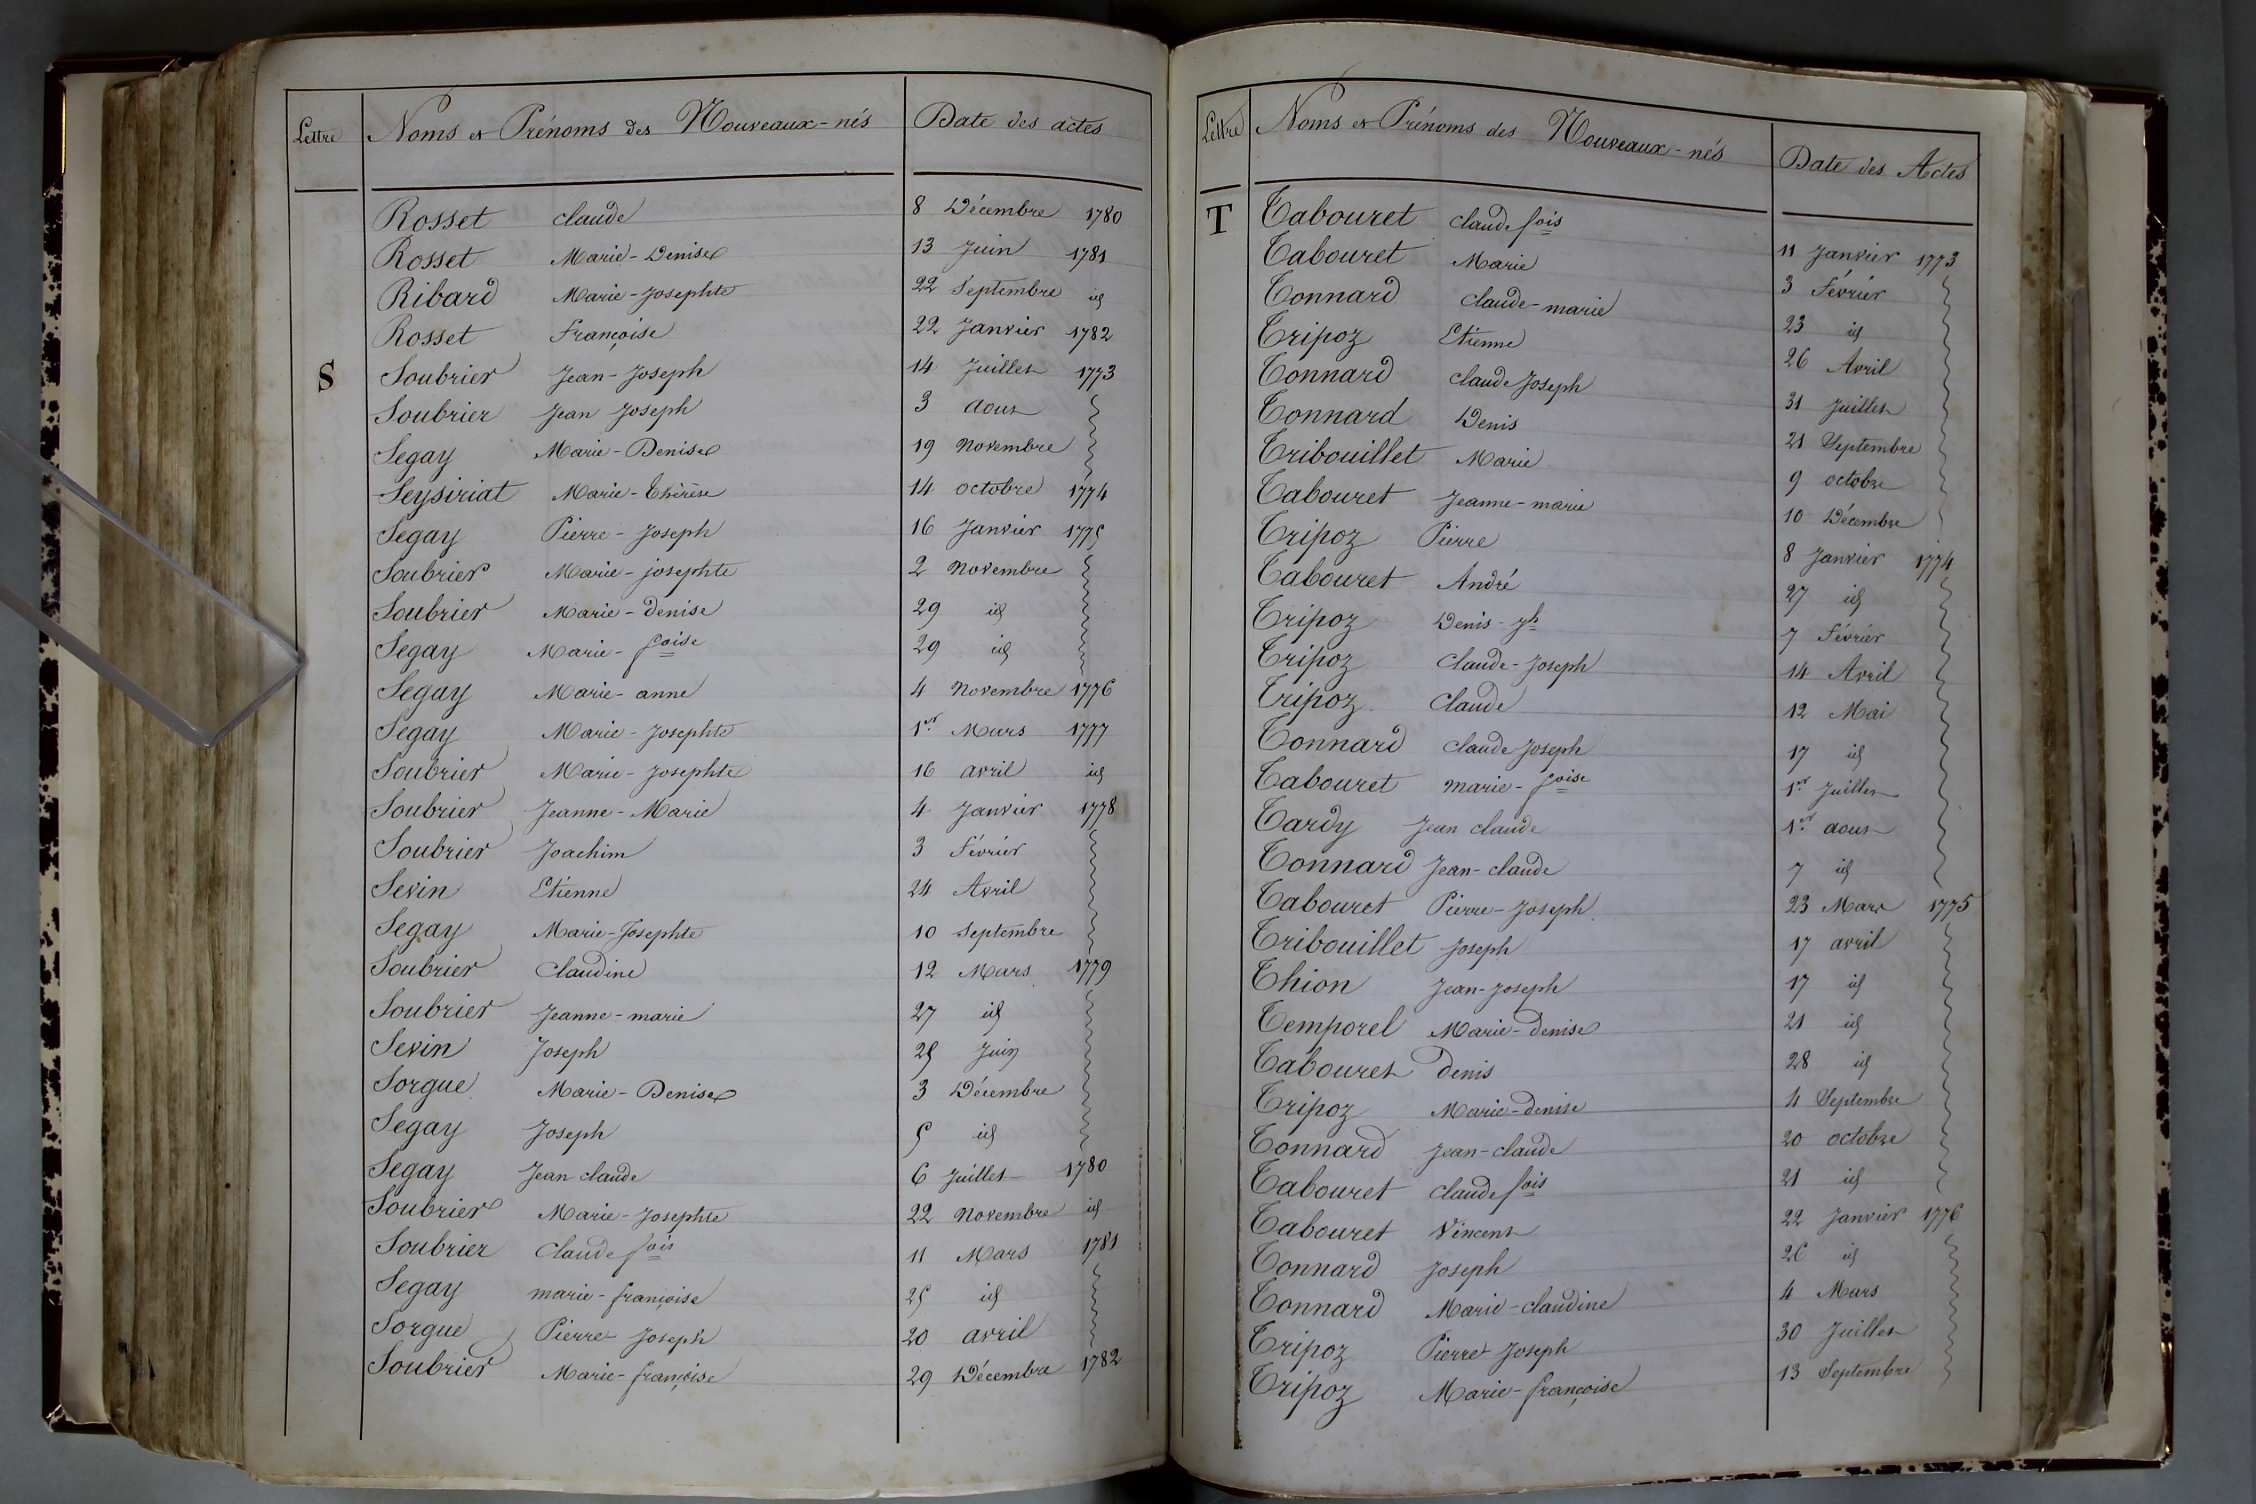 Lettre Noms et Prénoms des Nouveaux-nés Date des actes
Rosset claude 8 Décembre 1780
Rosset Marie-Denise 13 Juin 1781
Ribard Marie-Josephte 22 Septembre id
Rosset françoise 22 Janvier 1782
S Soubrier Jean-Joseph 14 Juillet 1773
Soubrier Jean Joseph 3 aout
Segay Marie-Denise 19 Novembre
Seysiriat Marie-Thérèse 14 octobre 1774
Segay Pierre-Joseph 16 Janvier 1775
Soubrier Marie-josephte 2 Novembre
Soubrier Marie-denise 29 id
Segay Marie-foise 29 id
Segay Marie-anne 4 Novembre 1776
Segay Marie-Josephte 1er Mars 1777
Soubrier Marie-Josephte 16 avril id
Soubrier Jeanne-Marie 4 Janvier 1778
Soubrier Joachim 3 Février
Sevin Etienne 24 Avril
Segay Marie-Josephte 10 Septembre
Soubrier Claudine 12 Mars 1779
Soubrier Jeanne-marie 27 id
Sevin Joseph 25 Juin
Sorgue Marie-Denise 3 Décembre
Segay Joseph 5 id
Segay Jean claude 6 Juillet 1780
Soubrier Marie-Josephte 22 Novembre id
Soubrier Claude fois 11 Mars 1781
Segay marie-françoise 25 id
Sorgue Pierre Joseph 20 avril
Soubrier Marie-françoise 29 Décembre 1782
Lettre Noms et Prénoms des Nouveaux-nés Date des Actes
T Tabouret claude fois 11 Janvier 1773
Tabouret Marie 3 Février
Tonnard claude-marie 23 id
Tripoz Etienne 26 Avril
Tonnard claude Joseph 31 Juillet
Tonnard Denis 21 Septembre
Tribouillet Marie 9 octobre
Tabouret Jeanne-marie 10 Décembre
Tripoz Pierre 8 Janvier 1774
Tabouret André 27 id
Tripoz Denis-Jh 7 Février
Tripoz Claude-Joseph 14 Avril
Tripoz Claude 12 Mai
Tonnard Claude Joseph 17 id
Tabouret marie-foise 1er Juillet
Tardy Jean claude 1er aout
Tonnard Jean-claude 7 id
Tabouret Pierre-Joseph 23 Mars 1775
Tribouillet Joseph 17 avril
Thion Jean-Joseph 17 id
Temporel Marie-denise 21 id
Tabouret Denis 28 id
Tripoz Marie-denise 4 Septembre
Tonnard Jean-claude 20 octobre
Tabouret claude fois 21 id
Tabouret Vincent 22 Janvier 1776
Tonnard Joseph 26 id
Tonnard Marie-claudine 4 Mars
Tripoz Pierre Joseph 30 Juillet
Tripoz Marie-françoise 13 Septembre